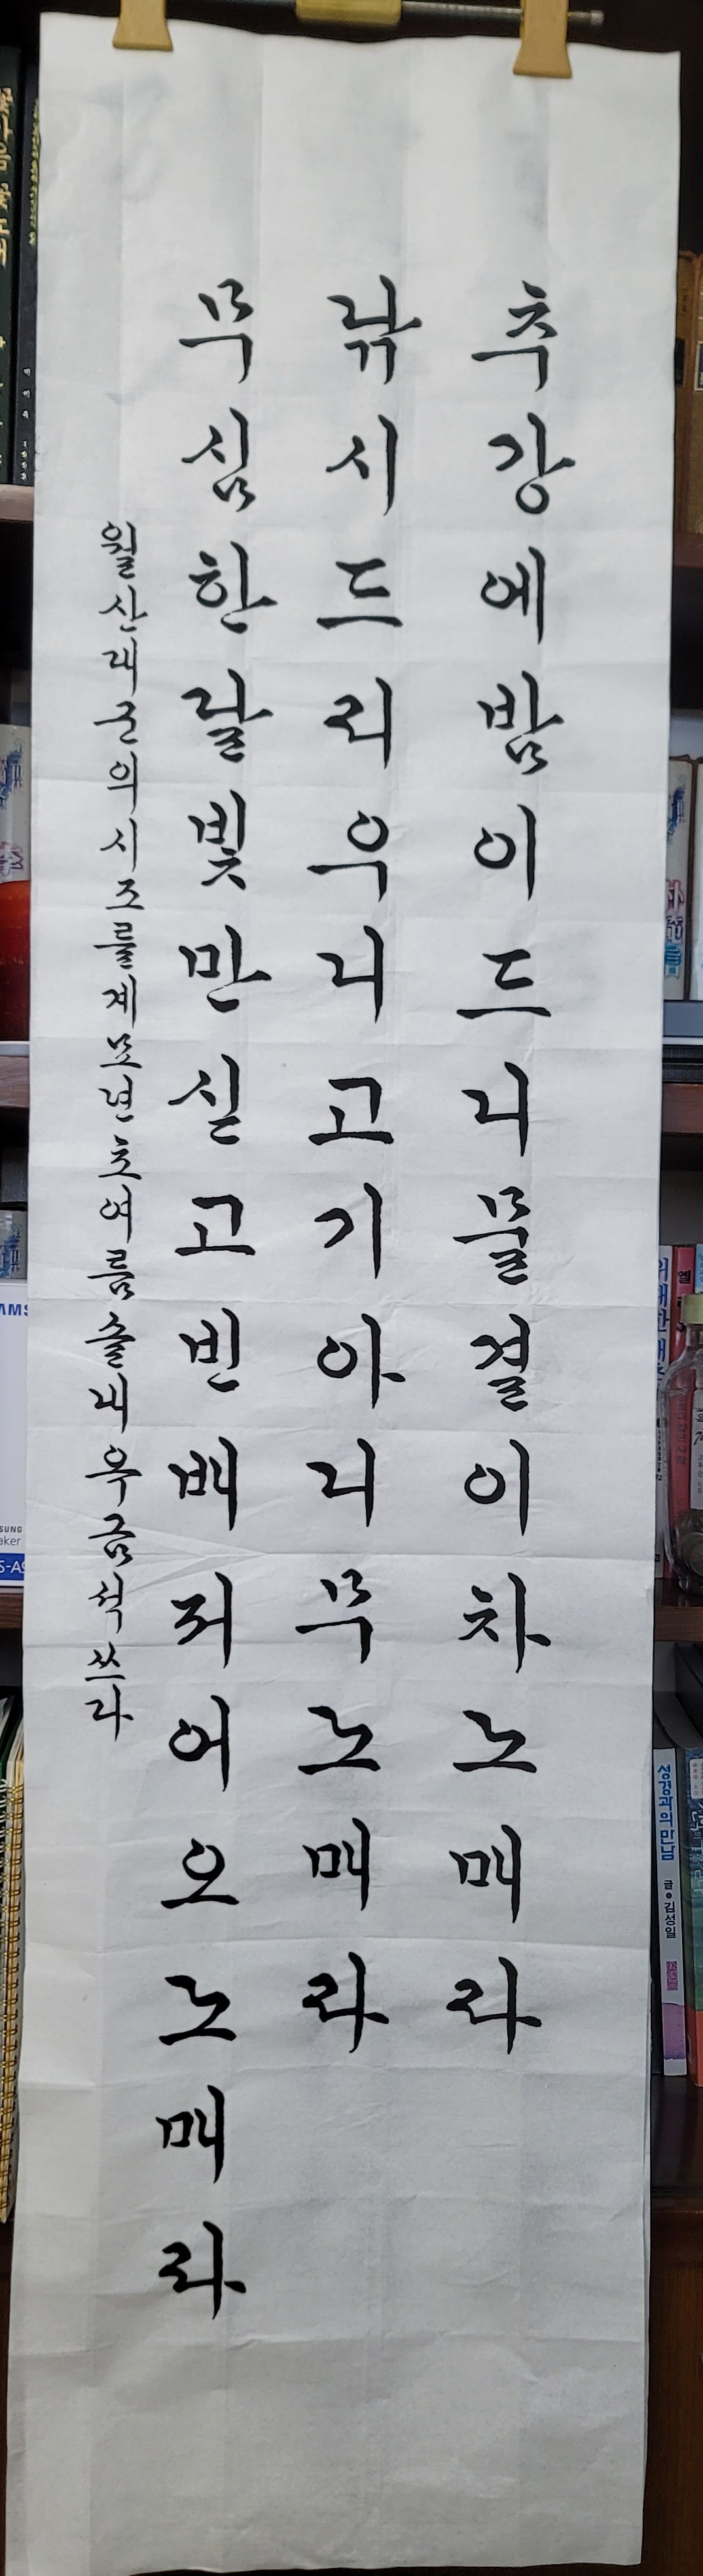 추강에밤이드니물결이차노매라
낚시드리우니고기아니무노매라
무심한달빛만싣고빈배저어오노매라
월산대군의시조를계묘년초여름솔내우금석쓰다
성경과의 만남
글 김성일